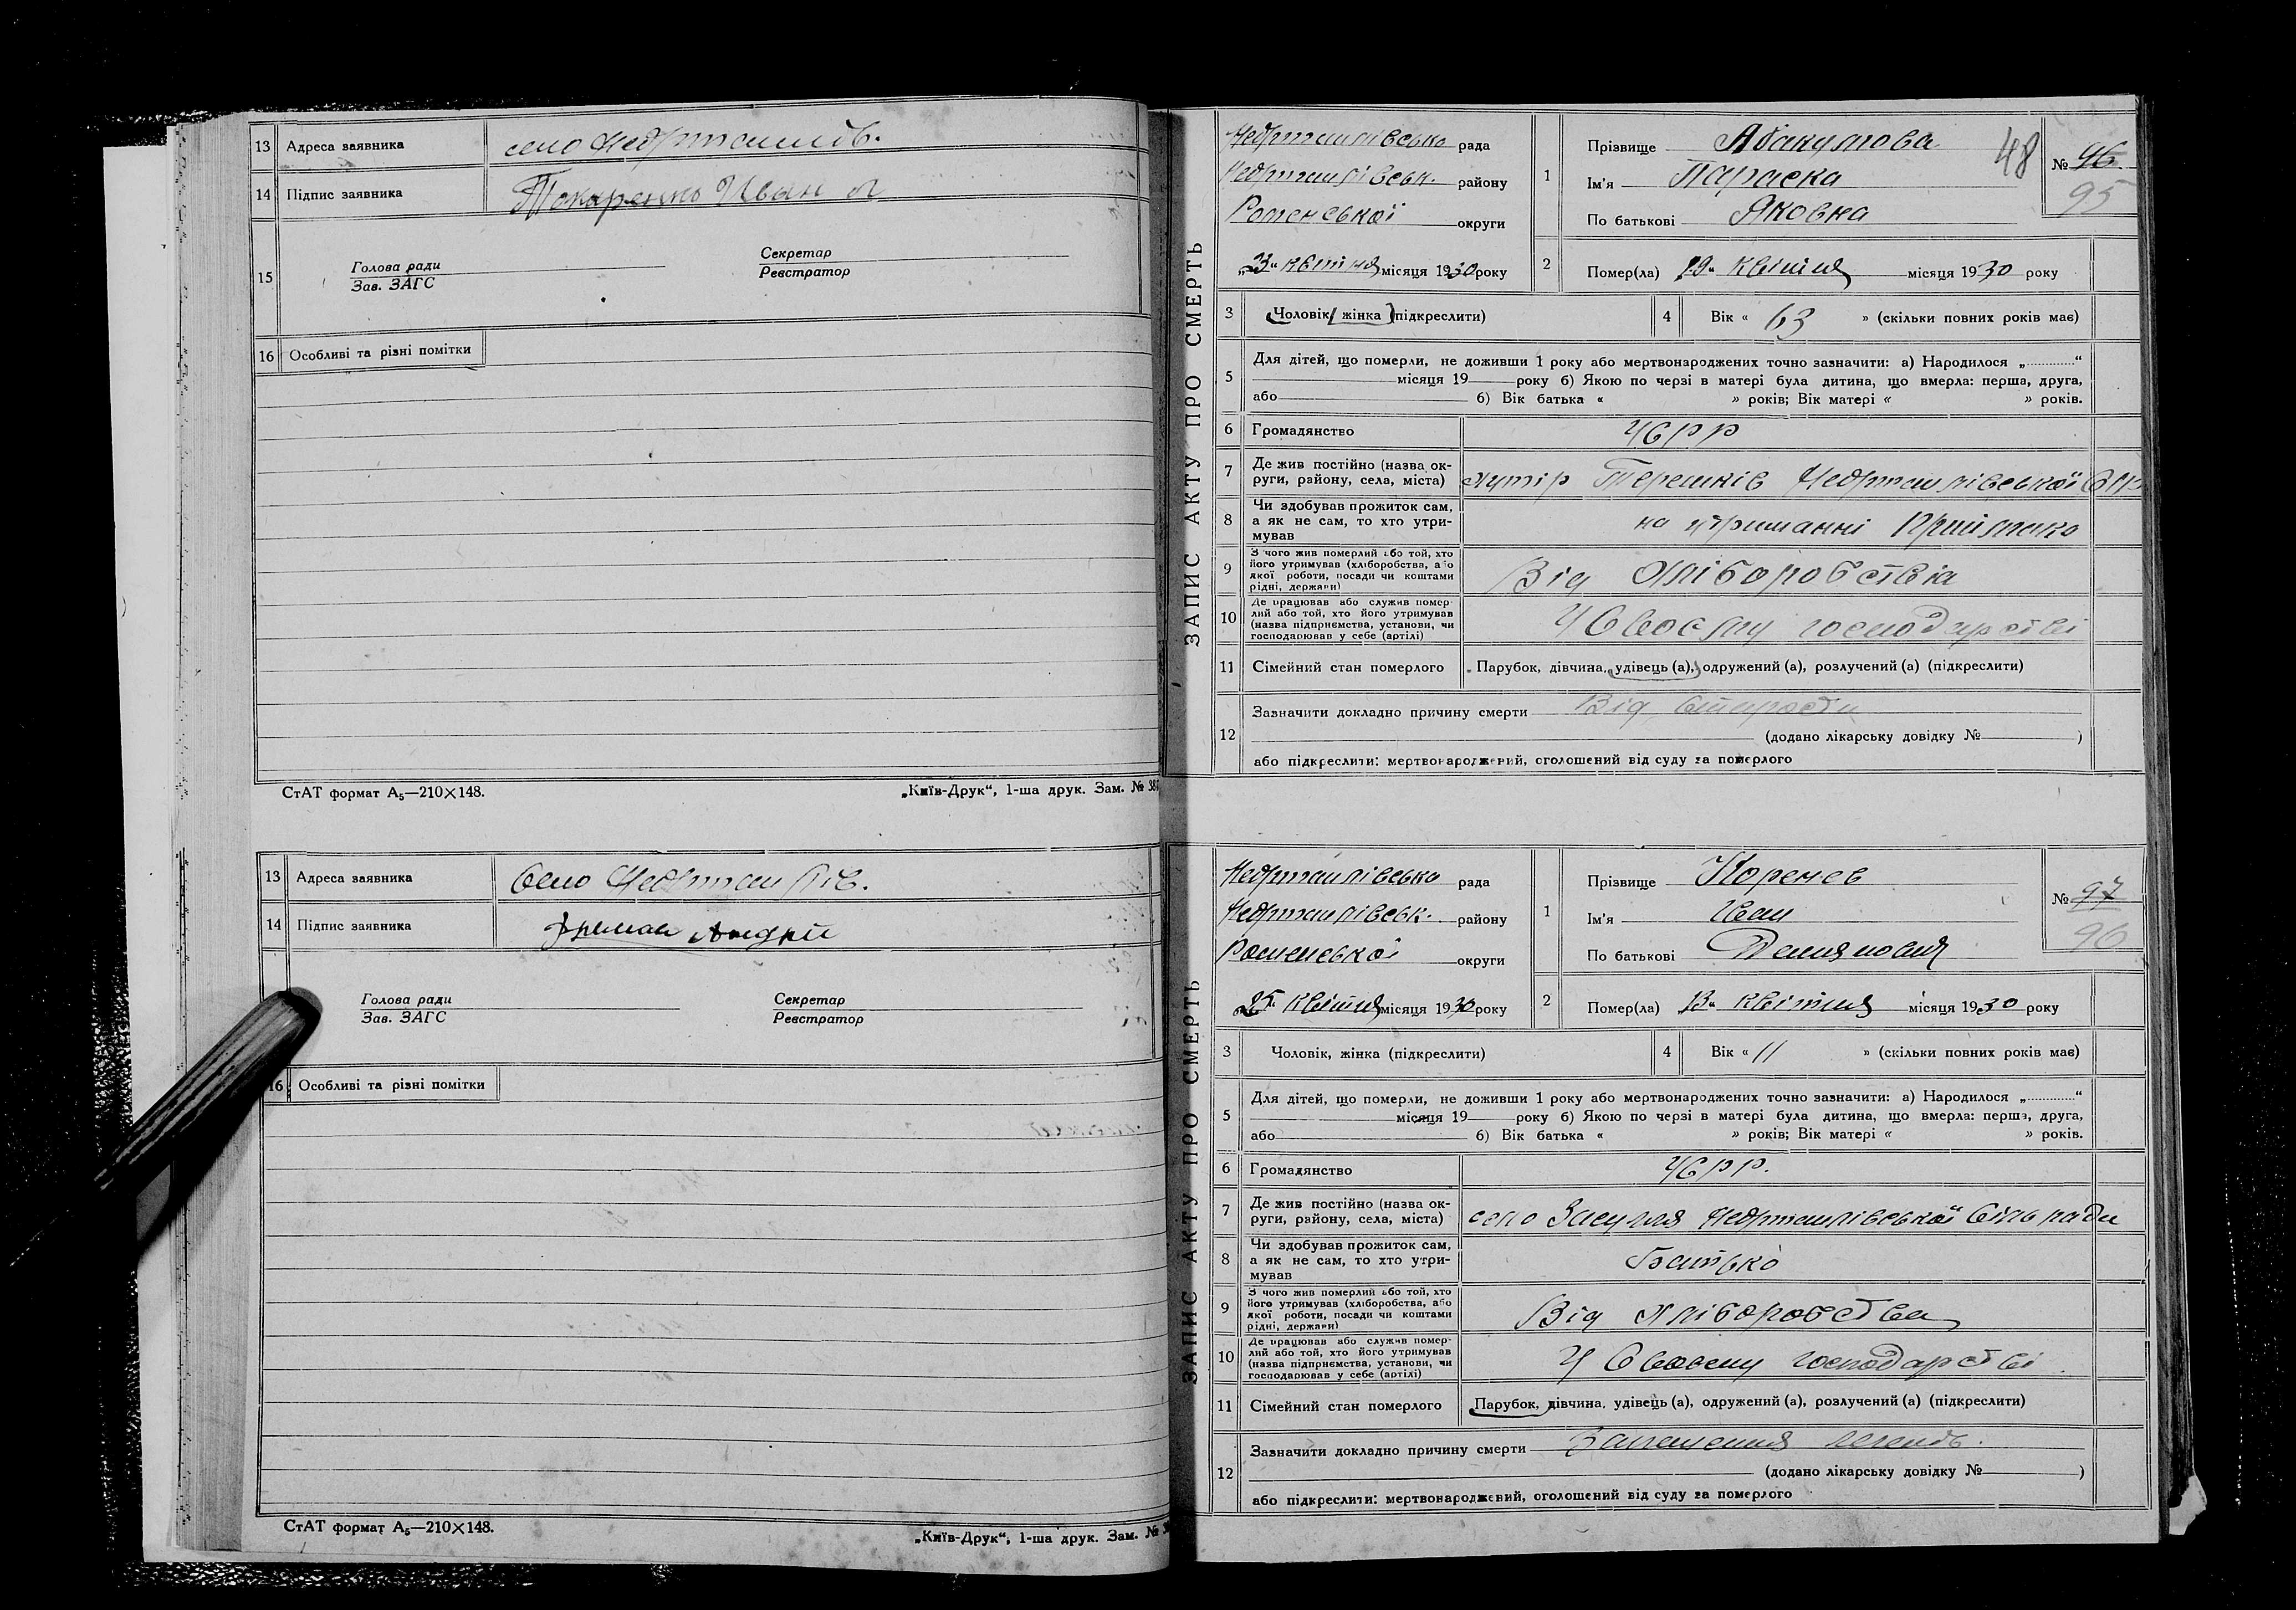 13 Адреса заявника село Недригайлів.
14 Підпис заявника Токаренко Иван
15
Голова ради
Зав. ЗАГС
Секретар
Реєстратор
16 Особливі та різні помітки
СтАТ формат А₅—210×148.
„Київ-Друк“, 1-ша друк. Зам. № 38
13 Адреса заявника Село Недригайлів.
14 Підпис заявника Андрій
Голова ради
Зав. ЗАГС
Секретар
Реєстратор
16 Особливі та різні помітки
СтАТ формат А₅—210×148.
„Київ-Друк“, 1-ша друк. Зам. №
ЗАПИС АКТУ ПРО СМЕРТЬ
Недригайлівська рада
Недригайлівськ. району
Роменської округи
„23“ квітня місяця 1930 року
1 Прізвище Абакумова
Ім'я Параска
По батькові Яковна
48
№ 96
95
2 Помер(ла) „19“ квітня місяця 1930 року
3 Чоловік, жінка (підкреслити)
4 Вік « 63 » (скільки повних років має)
5 Для дітей, що померли, не доживши 1 року або мертвонароджених точно зазначити: а) Народилося „ “
місяця 19 року б) Якою по черзі в матері була дитина, що вмерла: перша, друга,
або б) Вік батька « » років; Вік матері « » років.
6 Громадянство УСРР
7 Де жив постійно (назва ок-
руги, району, села, міста) хутір Терешків Недригайлівської
8 Чи здобував прожиток сам,
а як не сам, то хто утри-
мував на утриманні
9 З чого жив померлий або той, хто
його утримував (хліборобства, або
якої роботи, посади чи коштами
рідні, держави) Від хліборобствіа
10 Де працював або служив помер-
лий або той, хто його утримував
(назва підприємства, установи, чи
господарював у себе (артілі) У Своєму господарстві
11 Сімейний стан померлого Парубок, дівчина, удівець (а), одружений (а), розлучений (а) (підкреслити)
12 Зазначити докладно причину смерти Від Старости
(додано лікарську довідку № )
або підкреслити: мертвонароджений, оголошений від суду за померлого
ЗАПИС АКТУ ПРО СМЕРТЬ
Недригайлівська рада
Недригайлівськ. району
Роменської округи
„25“ квітня місяця 1930 року
1 Прізвище Коренев
Ім'я Іван
По батькові Демянович
№ 97
96
2 Помер(ла) „13“ квітня місяця 1930 року
3 Чоловік, жінка (підкреслити)
4 Вік « 11 » (скільки повних років має)
5 Для дітей, що померли, не доживши 1 року або мертвонароджених точно зазначити: а) Народилося „ “
місяця 19 року б) Якою по черзі в матері була дитина, що вмерла: перша, друга,
або б) Вік батька « » років; Вік матері « » років.
6 Громадянство УСРР.
7 Де жив постійно (назва ок-
руги, району, села, міста) село Засулля Недригайлівської Сільради
8 Чи здобував прожиток сам,
а як не сам, то хто утри-
мував Батько
9 З чого жив померлий або той, хто
його утримував (хліборобства, або
якої роботи, посади чи коштами
рідні, держави) Від хліборобства
10 Де працював або служив помер-
лий або той, хто його утримував
(назва підприємства, установи, чи
господарював у себе (артілі) У Своєму господарстві
11 Сімейний стан померлого Парубок, дівчина, удівець (а), одружений (а), розлучений (а) (підкреслити)
12 Зазначити докладно причину смерти Запалення легень.
(додано лікарську довідку № )
або підкреслити: мертвонароджений, оголошений від суду за померлого